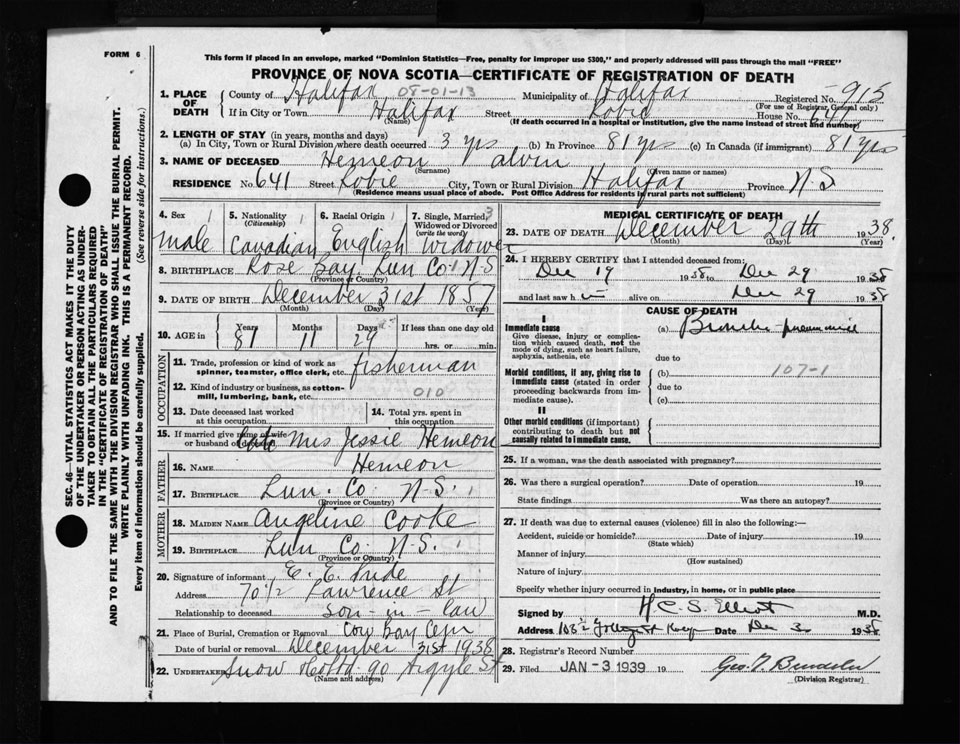 FORM 6
This form if placed in an envelope, marked "Dominion Statistics—Free, penalty for improper use $300," and properly addressed will pass through the mail "FREE"
PROVINCE OF NOVA SCOTIA—CERTIFICATE OF REGISTRATION OF DEATH
1. PLACE OF DEATH
County of Halifax 08-01-13 Municipality of Halifax Registered No. 915
(For use of Registrar General only)
If in City or Town Halifax Street Robie House No. 641
(Name) (If death occurred in a hospital or institution, give the name instead of street and number)
2. LENGTH OF STAY (in years, months and days)
(a) In City, Town or Rural Division where death occurred 3 yrs (b) In Province 81 yrs (c) In Canada (if immigrant) 81 yrs
3. NAME OF DECEASED Hemeon Alvin
(Surname) (Given name or names)
RESIDENCE No. 641 Street Robie City, Town or Rural Division Halifax Province N S
(Residence means usual place of abode. Post Office Address for residents in rural parts not sufficient)
4. Sex 1 5. Nationality 1 (Citizenship) 6. Racial Origin 1 7. Single, Married, Widowed or Divorced (write the word) 3
Male Canadian English Widower
8. BIRTHPLACE Rose Bay, Lun Co. N.S
9. DATE OF BIRTH December 31st 1857
(Month) (Day) (Year)
10. AGE in Years Months Days If less than one day old
81 11 29 hrs. or min.
OCCUPATION
11. Trade, profession or kind of work as spinner, teamster, office clerk, etc. fisherman
12. Kind of industry or business, as cotton-mill, lumbering, bank, etc. 010
13. Date deceased last worked at this occupation
14. Total yrs. spent in this occupation
15. If married give name of wife or husband of deceased Late Mrs Jessie Hemeon
FATHER
16. NAME Hemeon
17. BIRTHPLACE Lun. Co. N.S.
(Province or Country)
MOTHER
18. MAIDEN NAME Angeline Cooke
19. BIRTHPLACE Lun Co. N.S.
(Province or Country)
20. Signature of informant E. E.
Address 70½ Lawrence St
Relationship to deceased son-in-law
21. Place of Burial, Cremation or Removal Cow Bay Cem
Date of burial or removal December 31st 1938
22. UNDERTAKER Snow 90 Argyle St
(Name and address)
MEDICAL CERTIFICATE OF DEATH
23. DATE OF DEATH December 29th 1938.
(Month) (Day) (Year)
24. I HEREBY CERTIFY that I attended deceased from:
Dec 19 1938 to Dec 29 1938
and last saw h im alive on Dec 29 1938
CAUSE OF DEATH
I
Immediate cause
Give disease, injury or complication which caused death, not the mode of dying, such as heart failure, asphyxia, asthenia, etc
(a) Broncho pneumonia
due to
Morbid conditions, if any, giving rise to immediate cause (stated in order proceeding backwards from immediate cause).
(b) 107-1
due to
(c)
II
Other morbid conditions (if important) contributing to death but not causally related to immediate cause.
25. If a woman, was the death associated with pregnancy?
26. Was there a surgical operation? Date of operation 19
State findings Was there an autopsy?
27. If death was due to external causes (violence) fill in also the following:—
Accident, suicide or homicide? Date of injury 19
(State which)
Manner of injury
(How sustained)
Nature of injury
Specify whether injury occurred in industry, in home, or in public place
Signed by H C. S. Elliott M.D.
Address Date Dec 1938
28. Registrar's Record Number
29. Filed JAN - 3 1939 19
(Division Registrar)
SEC. 46—VITAL STATISTICS ACT MAKES IT THE DUTY
OF THE UNDERTAKER OR PERSON ACTING AS UNDER-
TAKER TO OBTAIN ALL THE PARTICULARS REQUIRED
IN THE "CERTIFICATE OF REGISTRATION OF DEATH"
AND TO FILE THE SAME WITH THE DIVISION REGISTRAR WHO SHALL ISSUE THE BURIAL PERMIT.
WRITE PLAINLY WITH UNFADING INK. THIS IS A PERMANENT RECORD.
Every item of information should be carefully supplied. (See reverse side for instructions.)